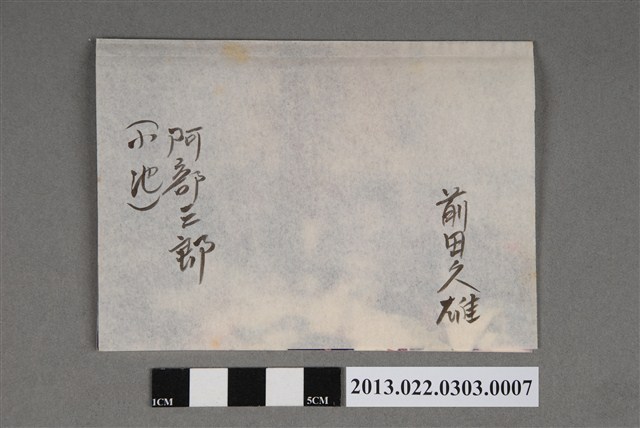 前田久雄
阿部三郎
(小池)
1CM
5CM
2013.022.0303.0007